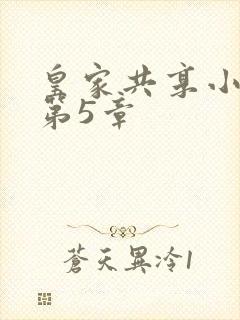 皇家共享小
第5章
蒼天異冷1